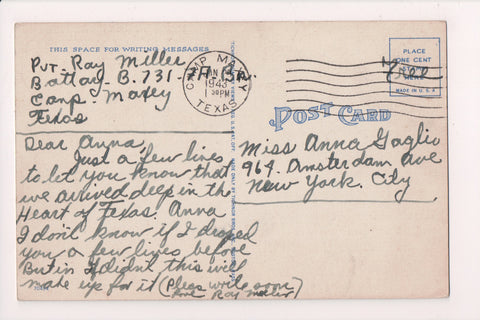 THIS SPACE FOR WRITING MESSAGES
Pvt. Ray Miller
Battary-B. 731-FA Bn.
Camp. Maxey
Texas
Dear Anna,
Just a few lines
to let you know that
we arrived deep in the
Heart of Texas. Anna
I don't know if I droped
you a few lines before
But in I didn't this will
make up for it (Pleas write soon
Love Ray Miller)
CAMP MAXEY
JAN
1943
1 30PM
TEXAS
PLACE
ONE CENT
STAMP
HERE
MADE IN U.S.A.
Free
POST CARD
Miss Anna Gaglio
964. Amsterdam Ave
New York. City